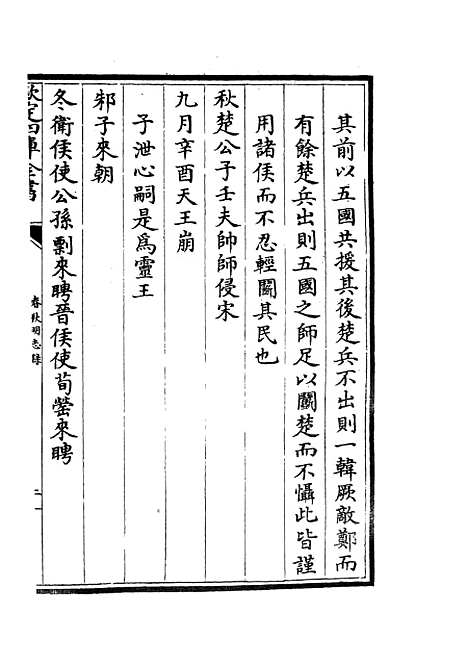 其前以五國共援其後楚兵不出則一韓厥敵鄭而
有餘楚兵出則五國之師足以鬬楚而不懾此皆謹
用諸侯而不忍輕鬬其民也
秋楚公子壬夫帥師侵宋
九月辛酉天王崩
子泄心嗣是爲靈王
邾子來朝
冬衛侯使公孫剽來聘晉侯使荀罃來聘
欽定四庫全書
春秋明志錄